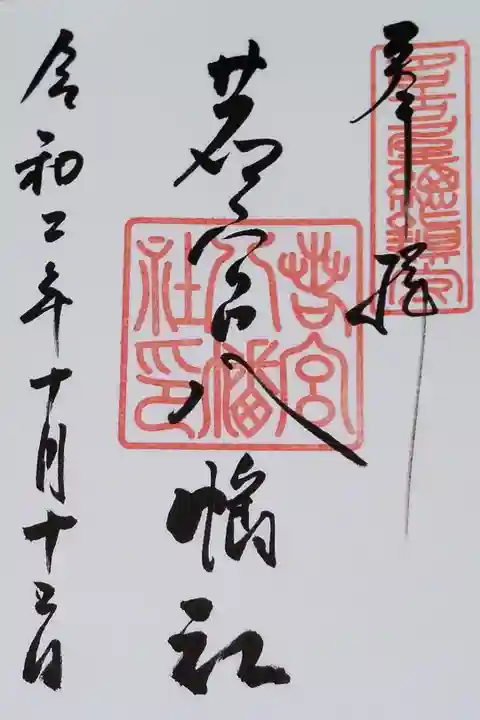 奉拝
若宮八幡社
若宮
八幡
社印
令和二年十月十三日